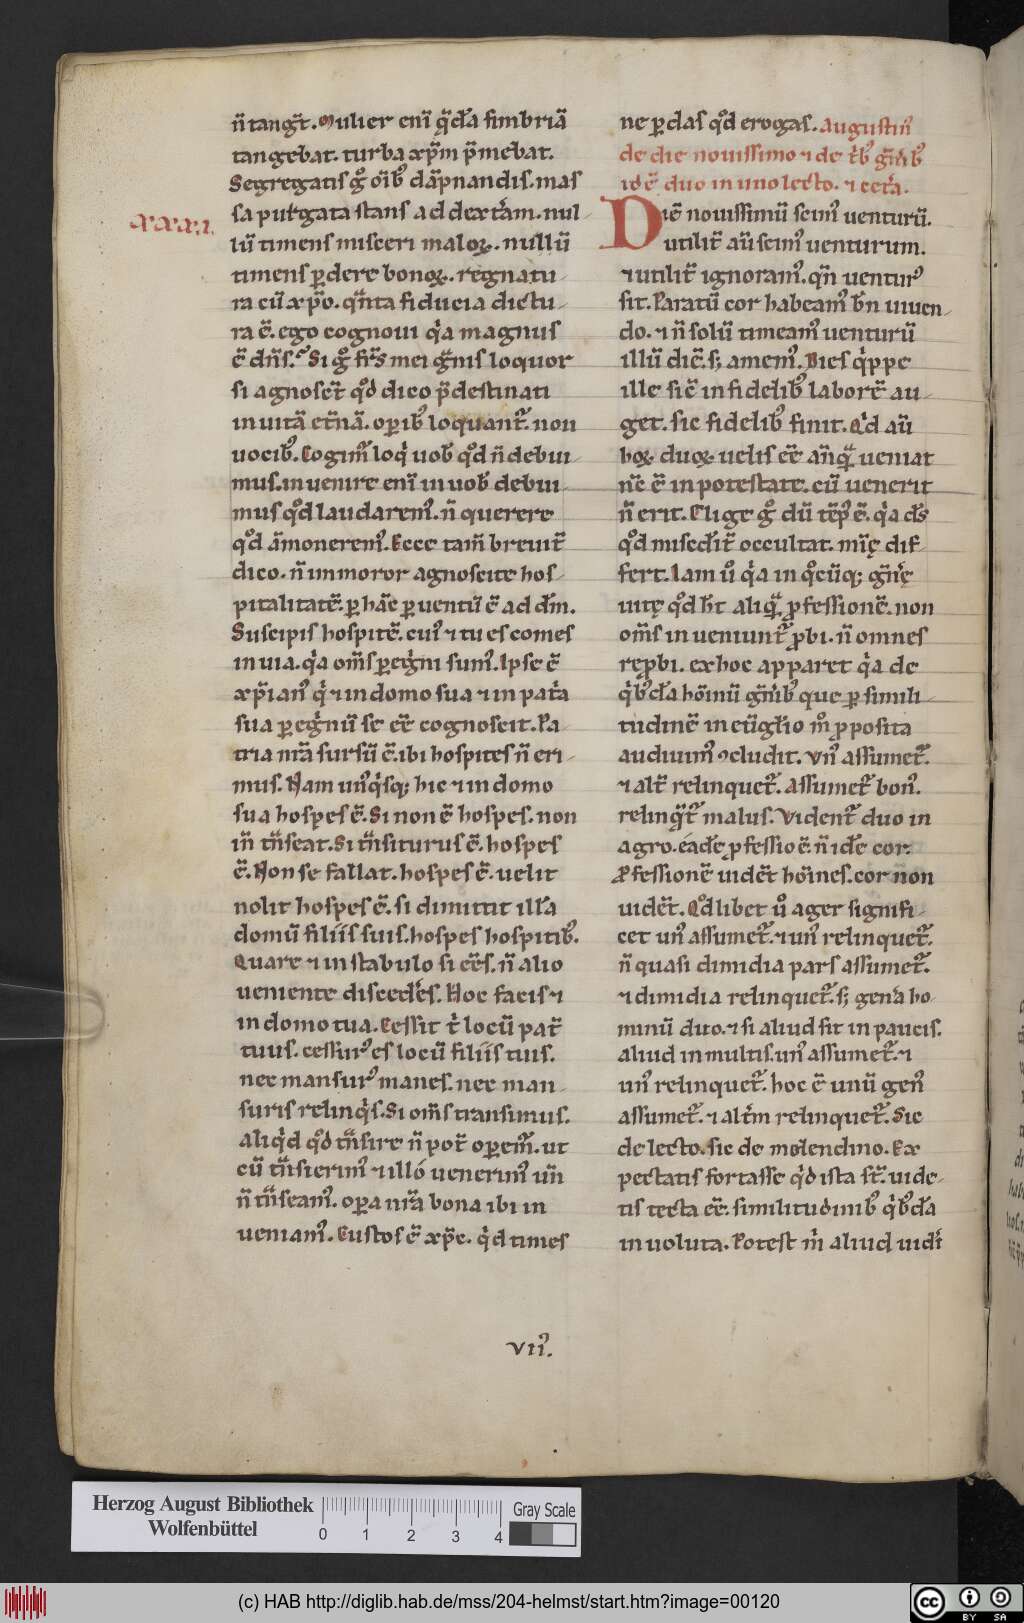 n̄ tangt̄. Mulier enī q̄dā fimbriā
tangebat. turba xp̄m p̄mebat.
Segregatis gͦ oīb; dāpnandis. mas
sa purgata stans ad dextᵃm. nul-
xxxxi.
lū timens misceri maloꝝ. nullū
timens ꝑdere bonoꝝ. regnatu-
ra cū xp̄o. qᵃnta fiducia dictu-
ra ē. ego cognoui qⁱa magnus
ē dn̄s. Si gͦ fr̄s mei gᵃuis loquor
si agnoscet̄ qͦd dico p̄destinati
in uitā et̄nā. oꝑib; loquant̄. non
uocib;. Cogim̄ loqⁱ uob̄ qͦd n̄ debui-
mus. inuenire enī in uob̄ debui-
mus qͦd laudarem᾽. n̄ querere
qͦd āmonerem᾽. Ecce tam̄ breuit̄
dico. n̄ inmoror agnoscite hos-
pitalitatē. ꝑ hāc ꝑuentū ē ad dm̄.
Suscipis hospitē. cui᾽ ⁊ tu es comes
in uia. qⁱa om̄s ꝑegⁱni sum᾽. Ipse ē
xp̄ian᾽ qⁱ ⁊ in domo sua ⁊ in patⁱa
sua ꝑegⁱnū se ēē cognoscit. Pa-
tria nr̄a sursū ē. ibi hospites n̄ eri-
mus. Nam un᾽qⁱsq; hic ⁊ in domo
sua hospes ē. Si non ē hospes. non
in̄ tn̄seat. Si tn̄siturus ē. hospes
ē. Non se fallat. hospes ē. uelit
nolit hospes ē. si dimittit illā
domū filiis suis. hospes hospitib;.
Quare ⁊ in stabulo si ēēs. n̄ alio
ueniente discedēs. Hoc facis ⁊
in domo tua. Cessit tⁱ locū pat̄
tuus. cessur᾽ es locū filiis tuis.
nec mansur᾽ manes. nec man-
suris relinqⁱs. Si om̄s transimus.
aliqⁱd qͦd tn̄sire n̄ pot̄ oꝑem᾽. ut
cū tn̄sierim᾽ ⁊ illó uenerim᾽ un̄
n̄ tn̄seam᾽. oꝑa nr̄a bona ibi in
ueniam᾽. Custos ē xp̄c. qⁱd times
ne ꝑdas qͦd erogas. Augustin᾽
de die nouissimo ⁊ de tⁱb; gn̄ib;
id ē duo in uno lecto. ⁊ cetᵃ.
Diē nouissimū scim᾽ uenturū.
utilit̄ aū scim᾽ uenturum.
⁊ utilit̄ ignoram᾽. qn̄ ventur᾽
sit. Paratū cor habeam᾽ bn̄ uiuen-
do. ⁊ n̄ solū timeam᾽ uenturū
illū diē. s; amem᾽. Dies qⁱppe
ille sic̄ infidelib; laborē au-
get. sic fidelib; finit. Qⁱd aū
hoꝝ duoꝝ uelis ēē an̄qᵃ ueniat
nc̄ ē in potestate. cū uenerit
n̄ erit. Elige gͦ dū tēp᾽ ē. qⁱa ds̄
qͦd misc̄dit̄ occultat. mīc̨ dif-
fert. Iam uͦ qⁱa in qͦcūq; gn̄e
uitę qͦd ht̄ aliqᵃ ꝓfessionē. non
om̄s inueniunt̄ ꝓbi. n̄ omnes
reꝓbi. ex hoc apparet qⁱa de
qⁱb;dā hōinū gn̄ib; que ꝑ simili-
tudinē in eūglio mͦ ꝓposita
audiuim᾽ ꝯcludit. Vn᾽ assumet̄.
⁊ alt̄ relinquet̄. assumet̄ bon᾽.
relinqᵘet̄ malus. Vident̄ duo in
agro. eadē ꝓfessio ē. n̄ idē cor.
Ꝓfessionē uidēt hōines. cor non
uidēt. Qͦdlibet uͦ ager signifi-
cet un᾽ assumet̄. ⁊ un᾽ relinquet̄.
n̄ quasi dimidia pars assumet̄.
⁊ dimidia relinquet̄. s; genᵃ ho-
minū duo. ⁊ si aliud sit in paucis.
aliud in multis. un᾽ assumet̄. ⁊
un᾽ relinquet̄. hoc ē unū gen᾽
assumet̄. ⁊ altm̄ relinquet̄. Sic
de lecto. sic de molendino. Ex
pectatis fortasse qⁱd ista st̄. uide-
tis tecta ēē. similitudinib; qⁱb;dā
inuoluta. Potest mⁱ aliud uidⁱ
vii᾽.
Herzog August Bibliothek
Wolfenbüttel
0 1 2 3 4
Gray Scale
(c) HAB http://diglib.hab.de/mss/204-helmst/start.htm?image=00120
cc BY SA